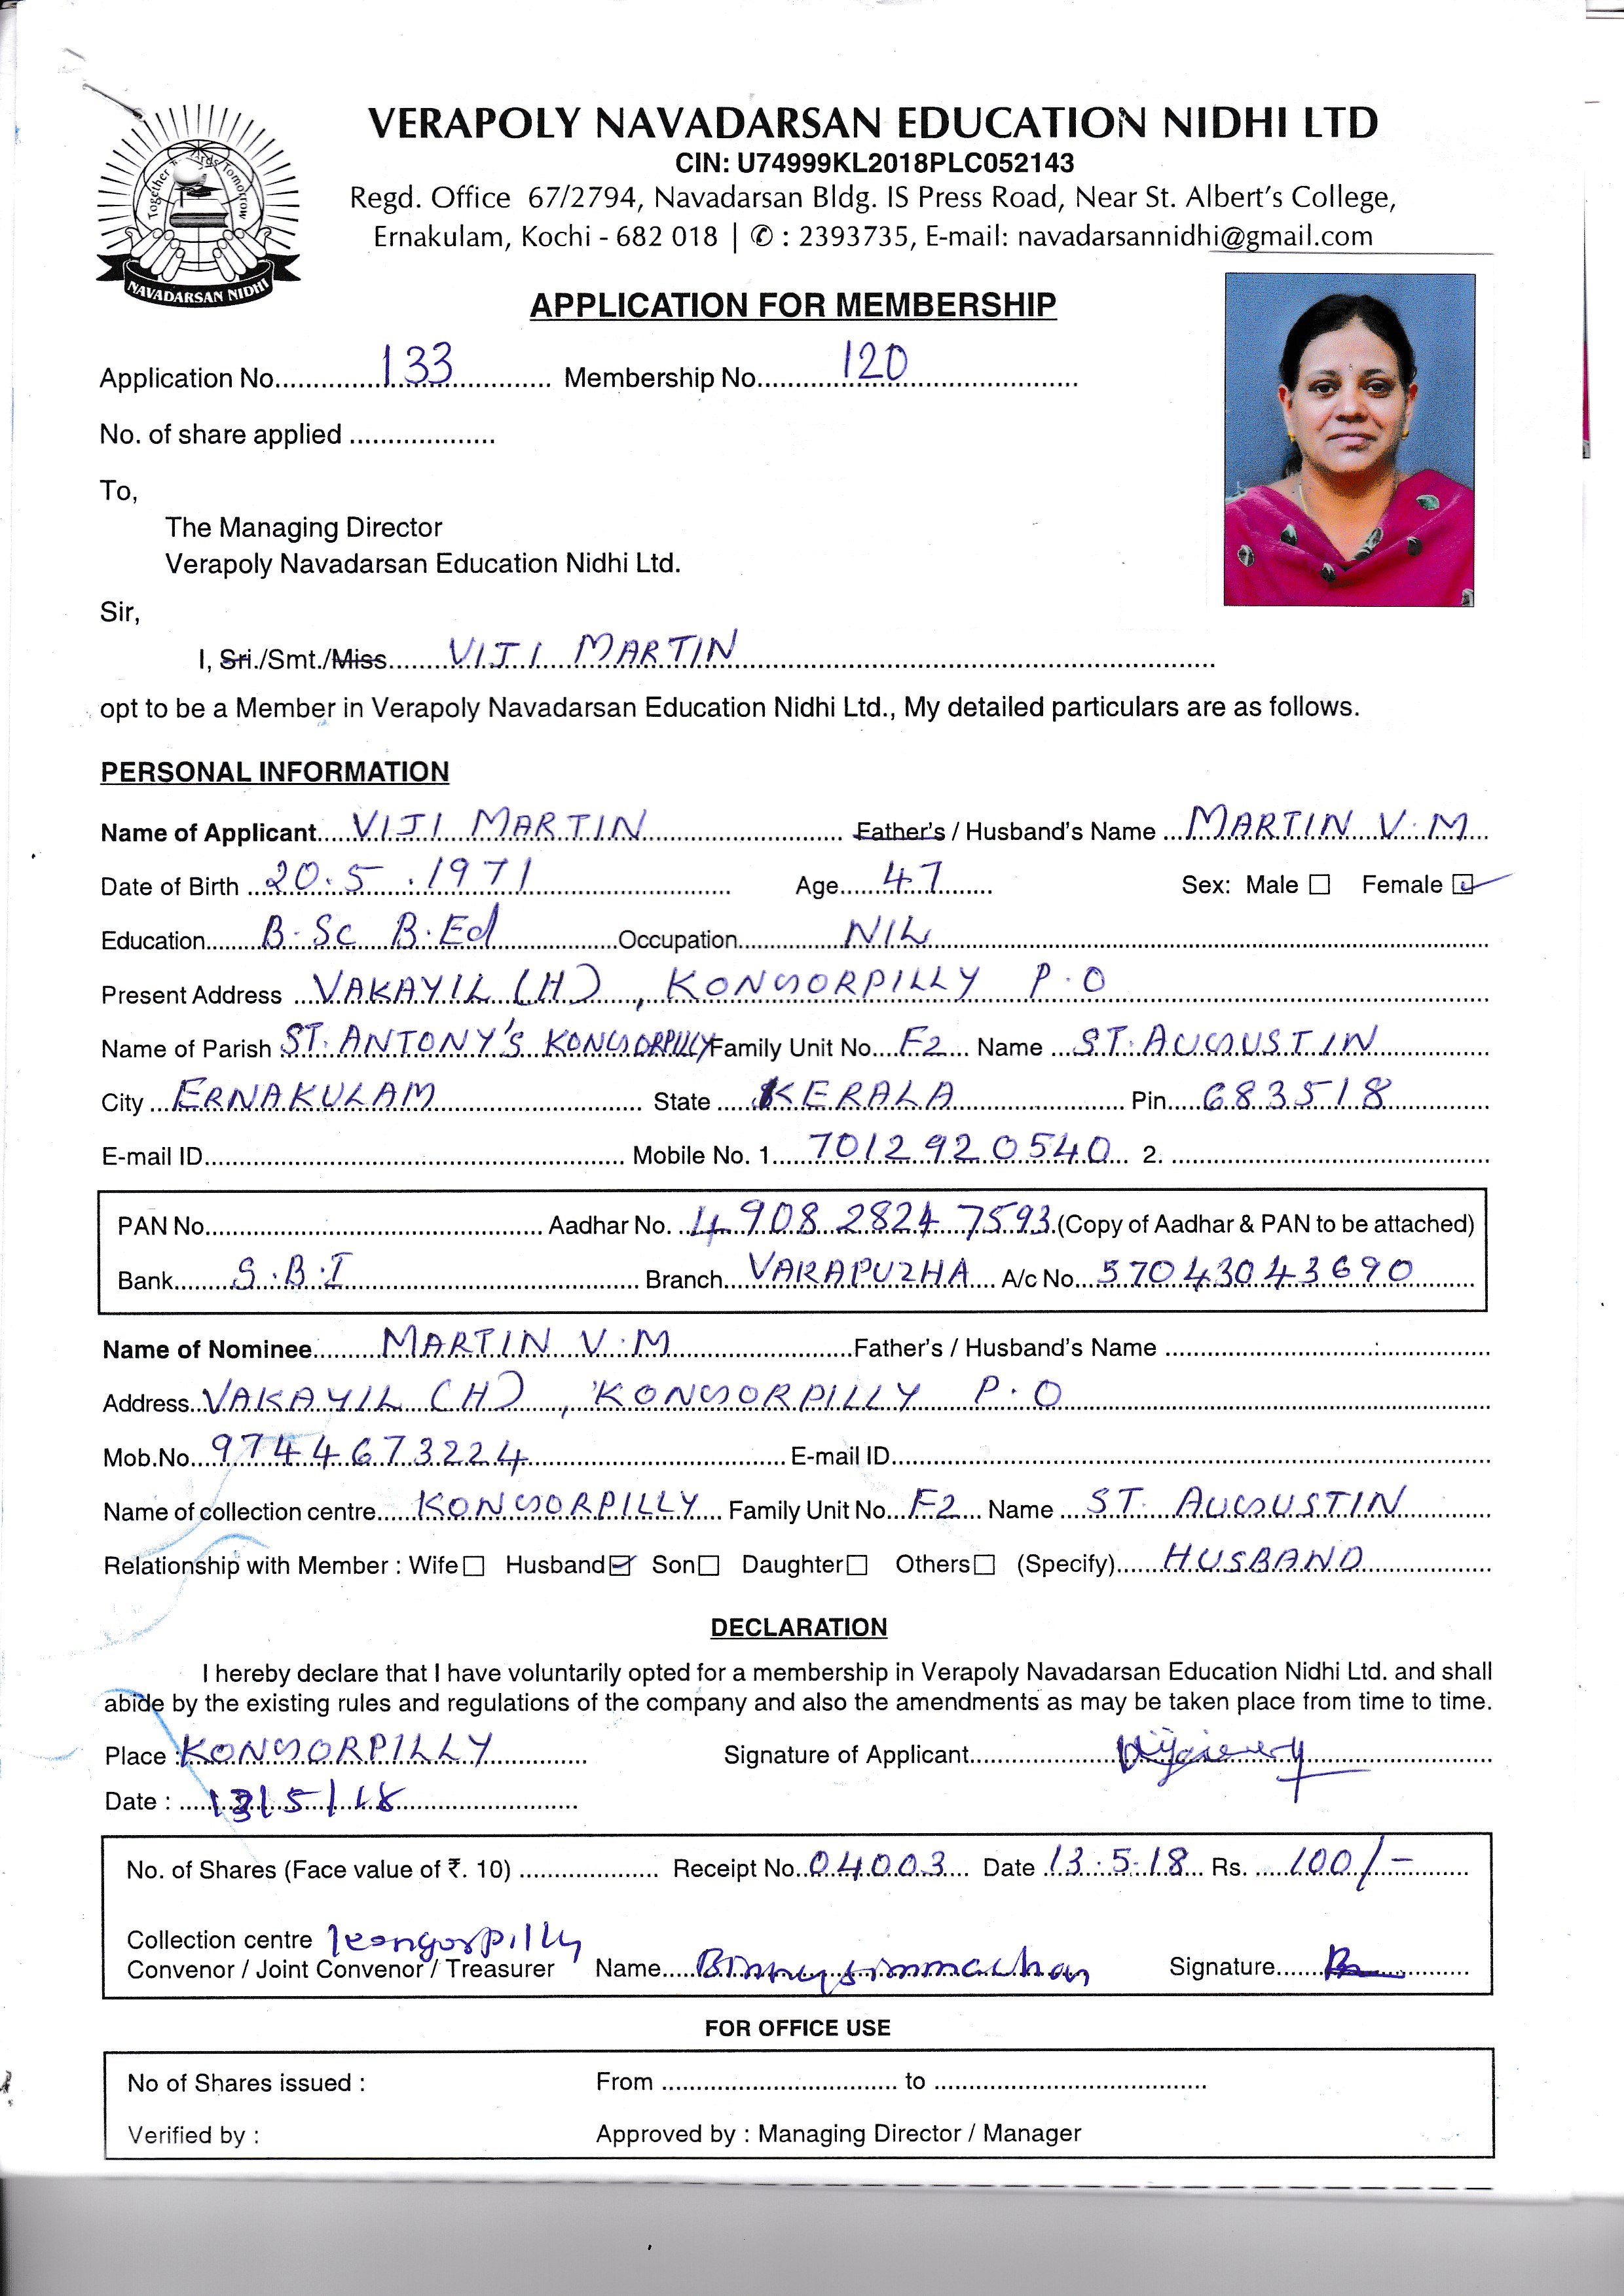 VERAPOLY NAVADARSAN EDUCATION NIDHI LTD
CIN: U74999KL2018PLC052143
Regd. Office 67/2794, Navadarsan Bldg. IS Press Road, Near St. Albert's College,
Ernakulam, Kochi - 682 018 | ✆ : 2393735, E-mail: navadarsannidhi@gmail.com
Together Towards Tomorrow
NAVADARSAN NIDHI
APPLICATION FOR MEMBERSHIP
Application No. 133 Membership No. 120
No. of share applied
To,
The Managing Director
Verapoly Navadarsan Education Nidhi Ltd.
Sir,
I, Sri./Smt./Miss VIJI MARTIN
opt to be a Member in Verapoly Navadarsan Education Nidhi Ltd., My detailed particulars are as follows.
PERSONAL INFORMATION
Name of Applicant VIJI MARTIN Father's / Husband's Name MARTIN V.M
Date of Birth 20.5.1971 Age 47 Sex: Male ☐ Female ☑
Education B.Sc B.Ed Occupation NIL
Present Address VAKAYIL (H), KONGORPILLY P.O
Name of Parish ST. ANTONY'S KONGORPILLY Family Unit No. F2 Name ST. AUGUSTIN
City ERNAKULAM State KERALA Pin 683518
E-mail ID Mobile No. 1 7012920540 2.
PAN No. Aadhar No. 4908 2824 7593 (Copy of Aadhar & PAN to be attached)
Bank S.B.I Branch VARAPUZHA A/c No. 57043043690
Name of Nominee MARTIN V.M Father's / Husband's Name
Address VAKAYIL (H), KONGORPILLY P.O
Mob.No. 9744673224 E-mail ID
Name of collection centre KONGORPILLY Family Unit No. F2 Name ST. AUGUSTIN
Relationship with Member : Wife ☐ Husband ☑ Son ☐ Daughter ☐ Others ☐ (Specify) HUSBAND
DECLARATION
I hereby declare that I have voluntarily opted for a membership in Verapoly Navadarsan Education Nidhi Ltd. and shall
abide by the existing rules and regulations of the company and also the amendments as may be taken place from time to time.
Place : KONGORPILLY Signature of Applicant
Date : 13/5/18
No. of Shares (Face value of ₹. 10) Receipt No. 04003 Date 13.5.18 Rs. 100/-
Collection centre Kongorpilly
Convenor / Joint Convenor / Treasurer Name Signature
FOR OFFICE USE
No of Shares issued : From to
Verified by : Approved by : Managing Director / Manager